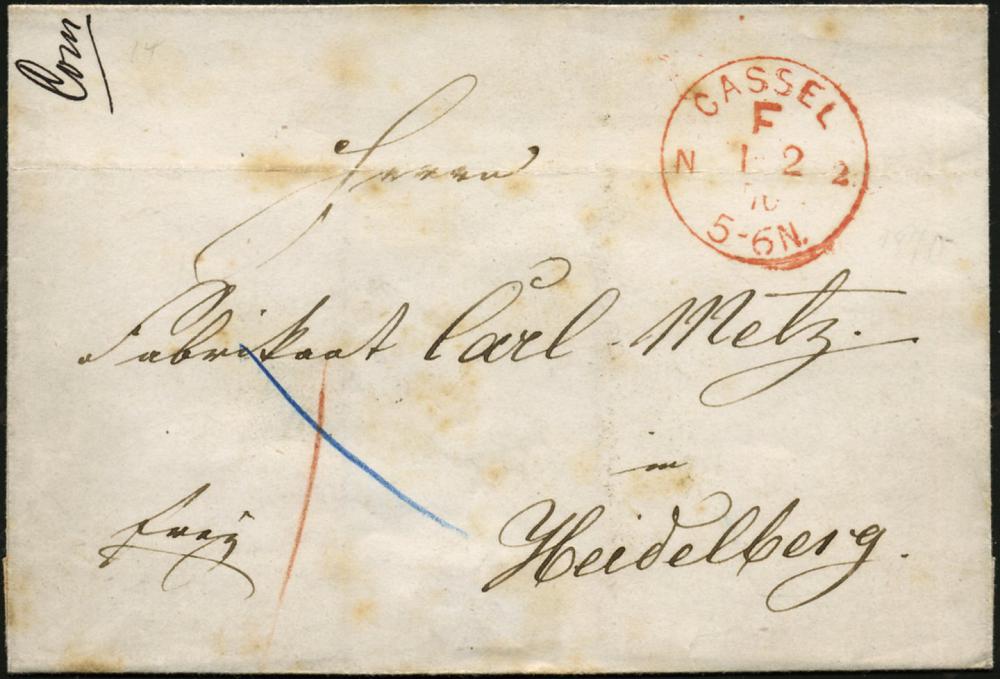 Com
CASSEL
F
N 1 2 2
70
5-6N.
Herrn
Fabrikant Carl Metz.
in
Heidelberg.
frey